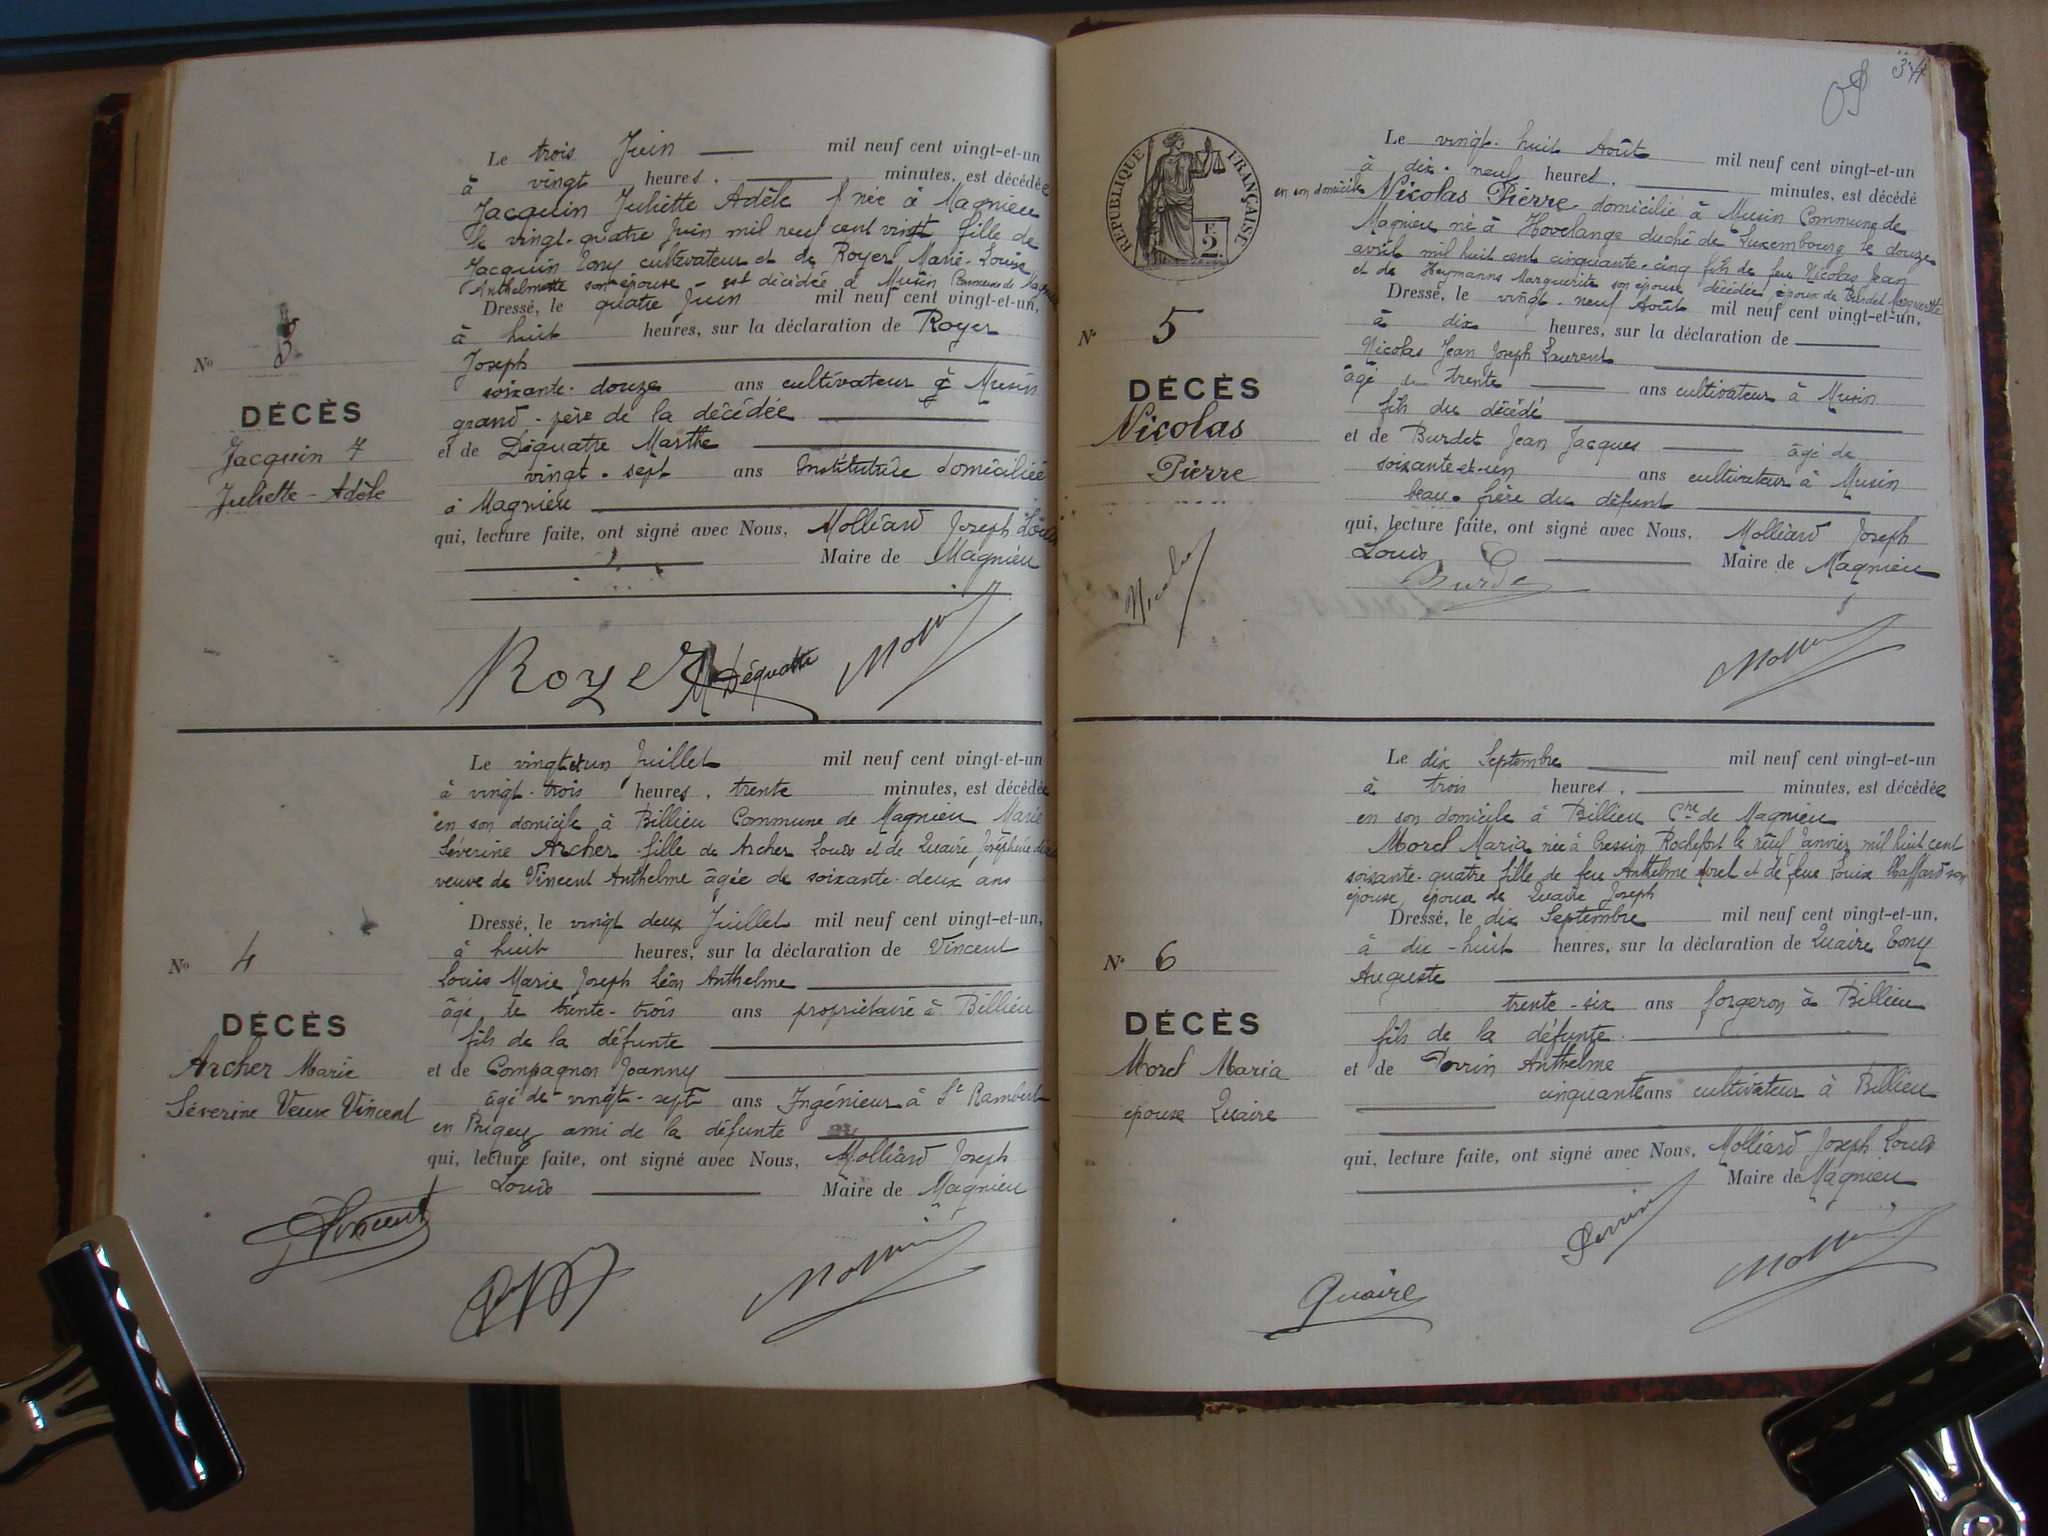 Le trois Juin mil neuf cent vingt-et-un
à vingt heures, minutes, est décédée
Jacquin Juliette Adèle née à Magnieu
le vingt-quatre Juin mil neuf cent vingt fille de
Jacquin Tony cultivateur et de Royer Marie-Louise
Anthelmette son épouse - est décédée à Musin Commune de Magnieu
Dressé, le quatre Juin mil neuf cent vingt-et-un,
à huit heures, sur la déclaration de Royer
Joseph
soixante-douze ans cultivateur à Musin
grand-père de la décédée
et de Déquatre Marthe
vingt-sept ans Institutrice domiciliée
à Magnieu
qui, lecture faite, ont signé avec Nous, Molliard Joseph Louis
Maire de Magnieu
No 3
DÉCÈS
Jacquin
Juliette-Adèle
Royer M Déquatre
Le vingt et un Juillet mil neuf cent vingt-et-un
à vingt-trois heures, trente minutes, est décédée
en son domicile à Billieu Commune de Magnieu Marie
Séverine Archer fille de Archer Louis et de Quaire Joséphine
veuve de Vincent Anthelme âgée de soixante-deux ans
Dressé, le vingt deux Juillet mil neuf cent vingt-et-un,
à huit heures, sur la déclaration de Vincent
Louis Marie Joseph Léon Anthelme
âgé de trente-trois ans propriétaire à Billieu
fils de la défunte
et de Compagnon Joanny
âgé de vingt-sept ans Ingénieur à St Rambert
en Bugey ami de la défunte
qui, lecture faite, ont signé avec Nous, Molliard Joseph
Louis Maire de Magnieu
No 4
DÉCÈS
Archer Marie
Séverine Veuve Vincent
Vincent
34
RÉPUBLIQUE FRANÇAISE
2 F.
Le vingt-huit Août mil neuf cent vingt-et-un
à dix-neuf heures, minutes, est décédé
en son domicile Nicolas Pierre domicilié à Musin Commune de
Magnieu né à Hovelange duché de Luxembourg le douze
avril mil huit cent cinquante-cinq fils de feu Nicolas Jean
et de Heymanns Marguerite son épouse décédée époux de Burdet Marguerite
Dressé, le vingt-neuf Août mil neuf cent vingt-et-un,
à dix heures, sur la déclaration de
Nicolas Jean Joseph Laurent
âgé de trente ans cultivateur à Musin
fils du décédé
et de Burdet Jean Jacques âgé de
soixante-et-un ans cultivateur à Musin
beau-frère du défunt
qui, lecture faite, ont signé avec Nous, Molliard Joseph
Louis Maire de Magnieu
No 5
DÉCÈS
Nicolas
Pierre
Nicolas
Burdet
Le dix Septembre mil neuf cent vingt-et-un
à trois heures, minutes, est décédée
en son domicile à Billieu Cne de Magnieu
Morel Maria née à Cressin Rochefort le neuf Janvier mil huit cent
soixante-quatre fille de feu Anthelme Morel et de feue Louise Maffard son
épouse, épouse de Quaire Joseph
Dressé, le dix Septembre mil neuf cent vingt-et-un,
à dix-huit heures, sur la déclaration de Quaire Tony
Auguste
trente-six ans forgeron à Billieu
fils de la défunte
et de Perrin Anthelme
cinquante ans cultivateur à Billieu
qui, lecture faite, ont signé avec Nous, Molliard Joseph Louis
Maire de Magnieu
No 6
DÉCÈS
Morel Maria
épouse Quaire
Perrin
Quaire